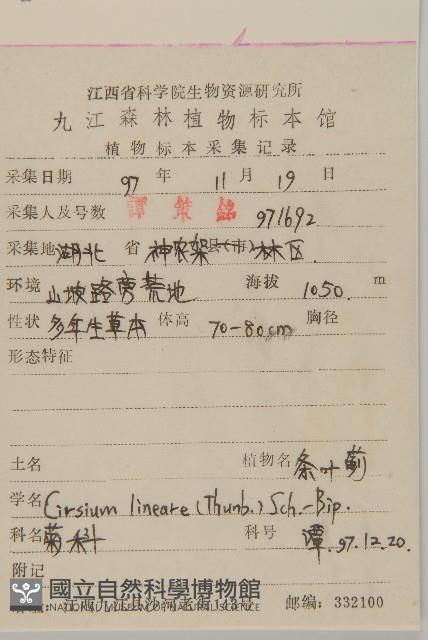 江西省科学院生物资源研究所
九江森林植物标本馆
植物标本采集记录
采集日期 97 年 11 月 19 日
采集人及号数 譚策銘 971692
采集地 湖北 省 神农架 县(市) 林区.
环境 山坡路旁荒地 海拔 1050. m
性状 多年生草本 体高 70-80cm 胸径
形态特征
土名 植物名 条叶蓟
学名 Cirsium lineare (Thunb.) Sch.-Bip.
科名 菊科 科号 谭.97.12.20.
附记
國立自然科學博物館
NATIONAL MUSEUM OF NATURAL SCIENCE
江西九江县沙河 邮编: 332100